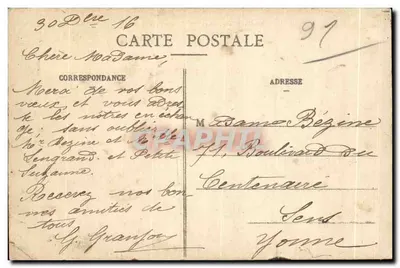 30 Dbre 16
91
CARTE POSTALE
Chère Madame
CORRESPONDANCE
ADRESSE
Merci de vos bons
vœux et vous adres
se les nôtres en échan
ge, sans oublier
Mr Bezine et Mlle
et Petite
Suzanne.
Recevez nos bon
nes amitiés de
tous
G. Granjon
Madame Bézine
71, Boulevard du
Centenaire
Sens
Yonne
CPAPHIL